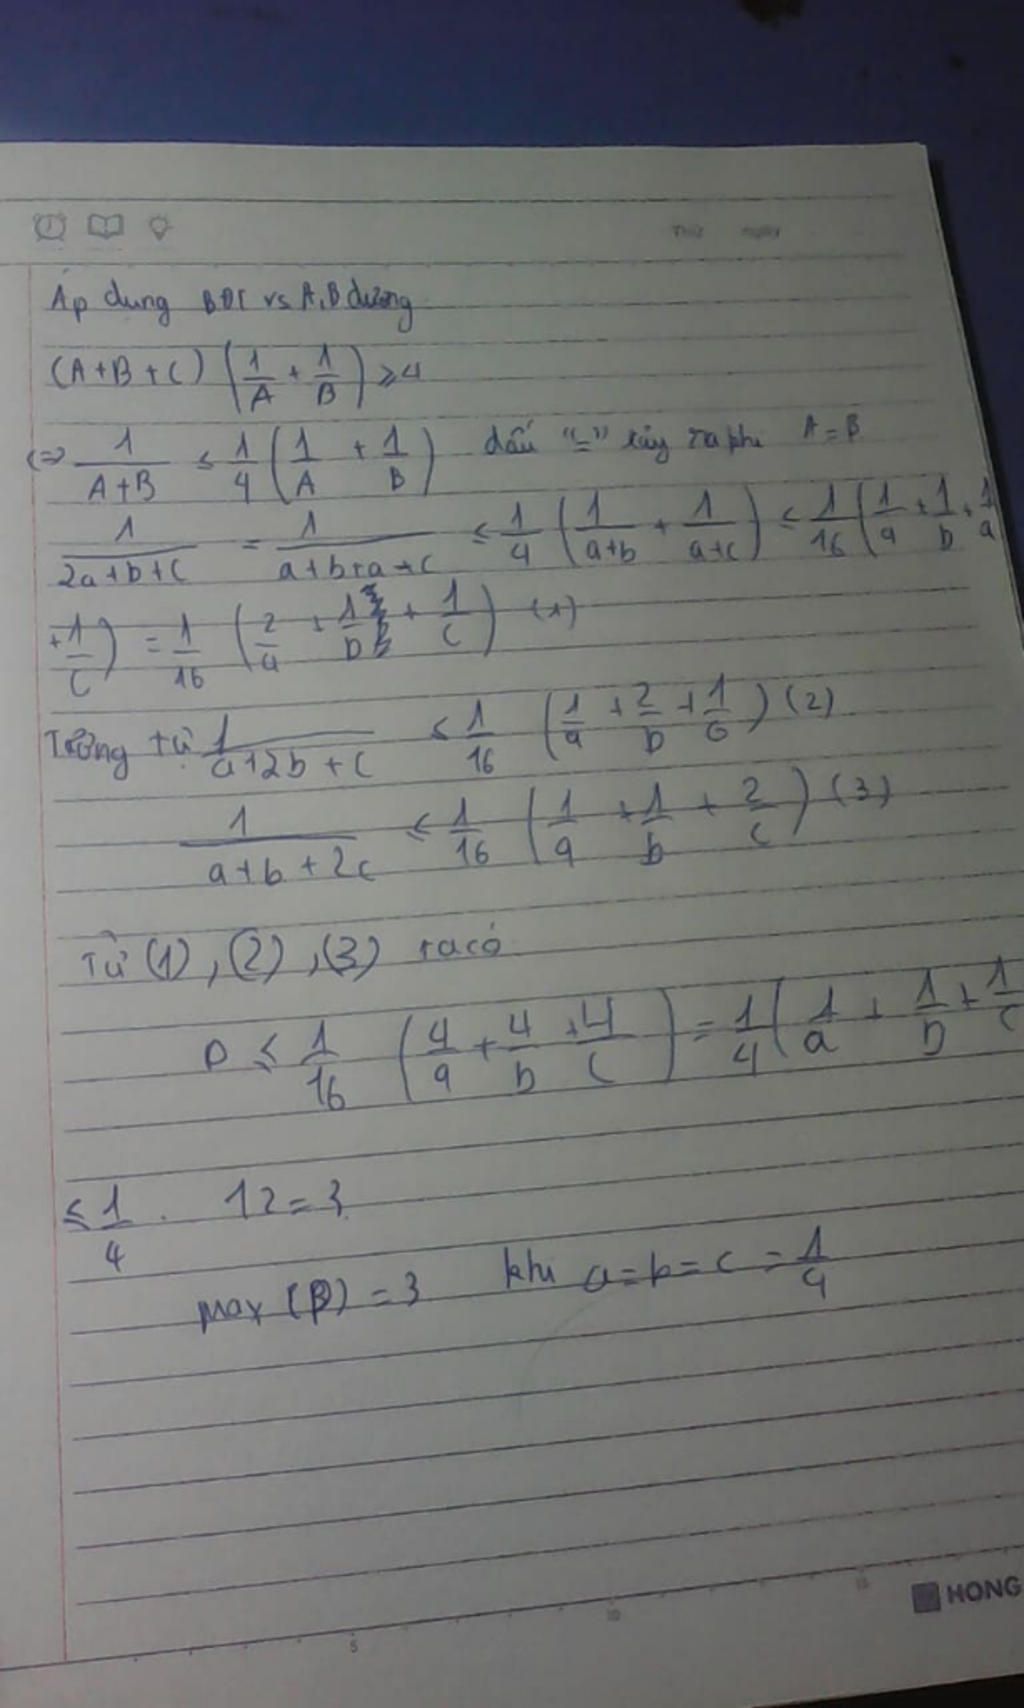 Áp dụng BĐT vs A,B dương
(A+B+C) (1/A + 1/B) ≥ 4
(=> 1/(A+B) ≤ 1/4 (1/A + 1/B) dấu "=" xảy ra khi A = B
1/(2a+b+c) = 1/(a+b+a+c) ≤ 1/4 (1/(a+b) + 1/(a+c)) ≤ 1/16 (1/a + 1/b + 1/a
+ 1/c) = 1/16 (2/a + 1/b + 1/c) (1)
Tương tự 1/(a+2b+c) ≤ 1/16 (1/a + 2/b + 1/c) (2)
1/(a+b+2c) ≤ 1/16 (1/a + 1/b + 2/c) (3)
Từ (1), (2), (3) ta có
P ≤ 1/16 (4/a + 4/b + 4/c) = 1/4 (1/a + 1/b + 1/c
≤ 1/4 . 12 = 3
max (P) = 3 khi a = b = c = 1/4
5 10 15
HONG